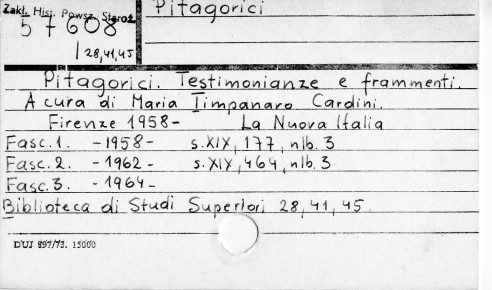 Zakł. Hist. Powsz. Staroż.
57608
Pitagorici
| 28,41,45
Pitagorici. Testimonianze e frammenti.
A cura di Maria Timpanaro Cardini.
Firenze 1958- La Nuova Italia
Fasc. 1. -1958- s. XIX, 177, nlb. 3
Fasc. 2. -1962- s. XIX, 464, nlb. 3
Fasc. 3. -1964-
Biblioteca di Studi Superiori 28, 41, 45.
DUJ 897/73. 15000